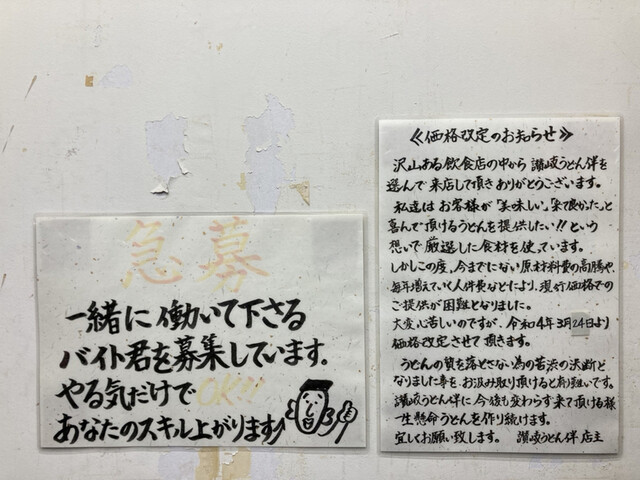 急募
一緒に働いて下さる
バイト君を募集しています.
やる気だけでOK!!
あなたのスキル上がります
≪価格改定のお知らせ≫
沢山ある飲食店の中から 讃岐うどん伴を
選んで来店して頂きありがとうございます。
私達は お客様が「美味しい」「来て良かった」と
喜んで頂けるうどんを提供したい!! という
想いで厳選した食材を使っています。
しかしこの度、今までにない原材料費の高騰や、
毎年増えていく人件費などにより、現行価格での
ご提供が困難となりました。
大変心苦しいのですが、令和4年3月24日より
価格改定させて頂きます。
うどんの質を落とさない為の苦渋の決断と
なりました事を、お汲み取り頂けると有り難いです。
讃岐うどん伴に今後も変わらず来て頂ける様
一生懸命うどんを作り続けます。
宜しくお願い致します。 讃岐うどん伴 店主